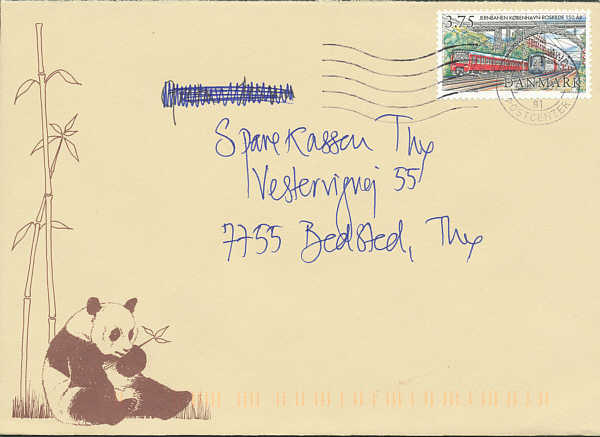 3.75 JERNBANEN KØBENHAVN-ROSKILDE 150 ÅR
DANMARK
91
POSTCENTER
Sparekassen Thy
Vestervigvej 55
7755 Bedsted, Thy